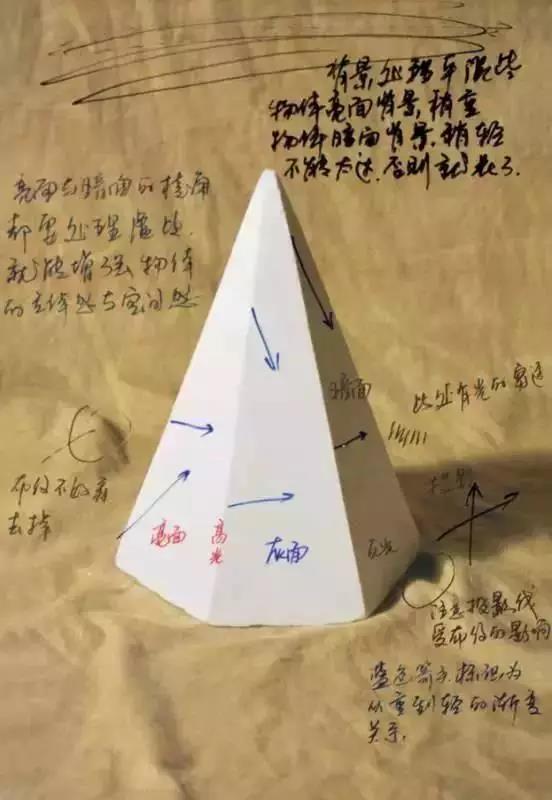 背景处理平缓些
物体亮面背景,稍重
物体暗面背景,稍轻
不能太过,否则就花了
亮面与暗面的棱角
都要处理虚些
就能增强物体
的立体感与空间感
暗面
此处有光的穿透
布纹不好看
去掉
投影
亮面
高光
灰面
反光
注意投影线
受布纹的影响
蓝色箭头标识为
从重到轻的渐变
关系.